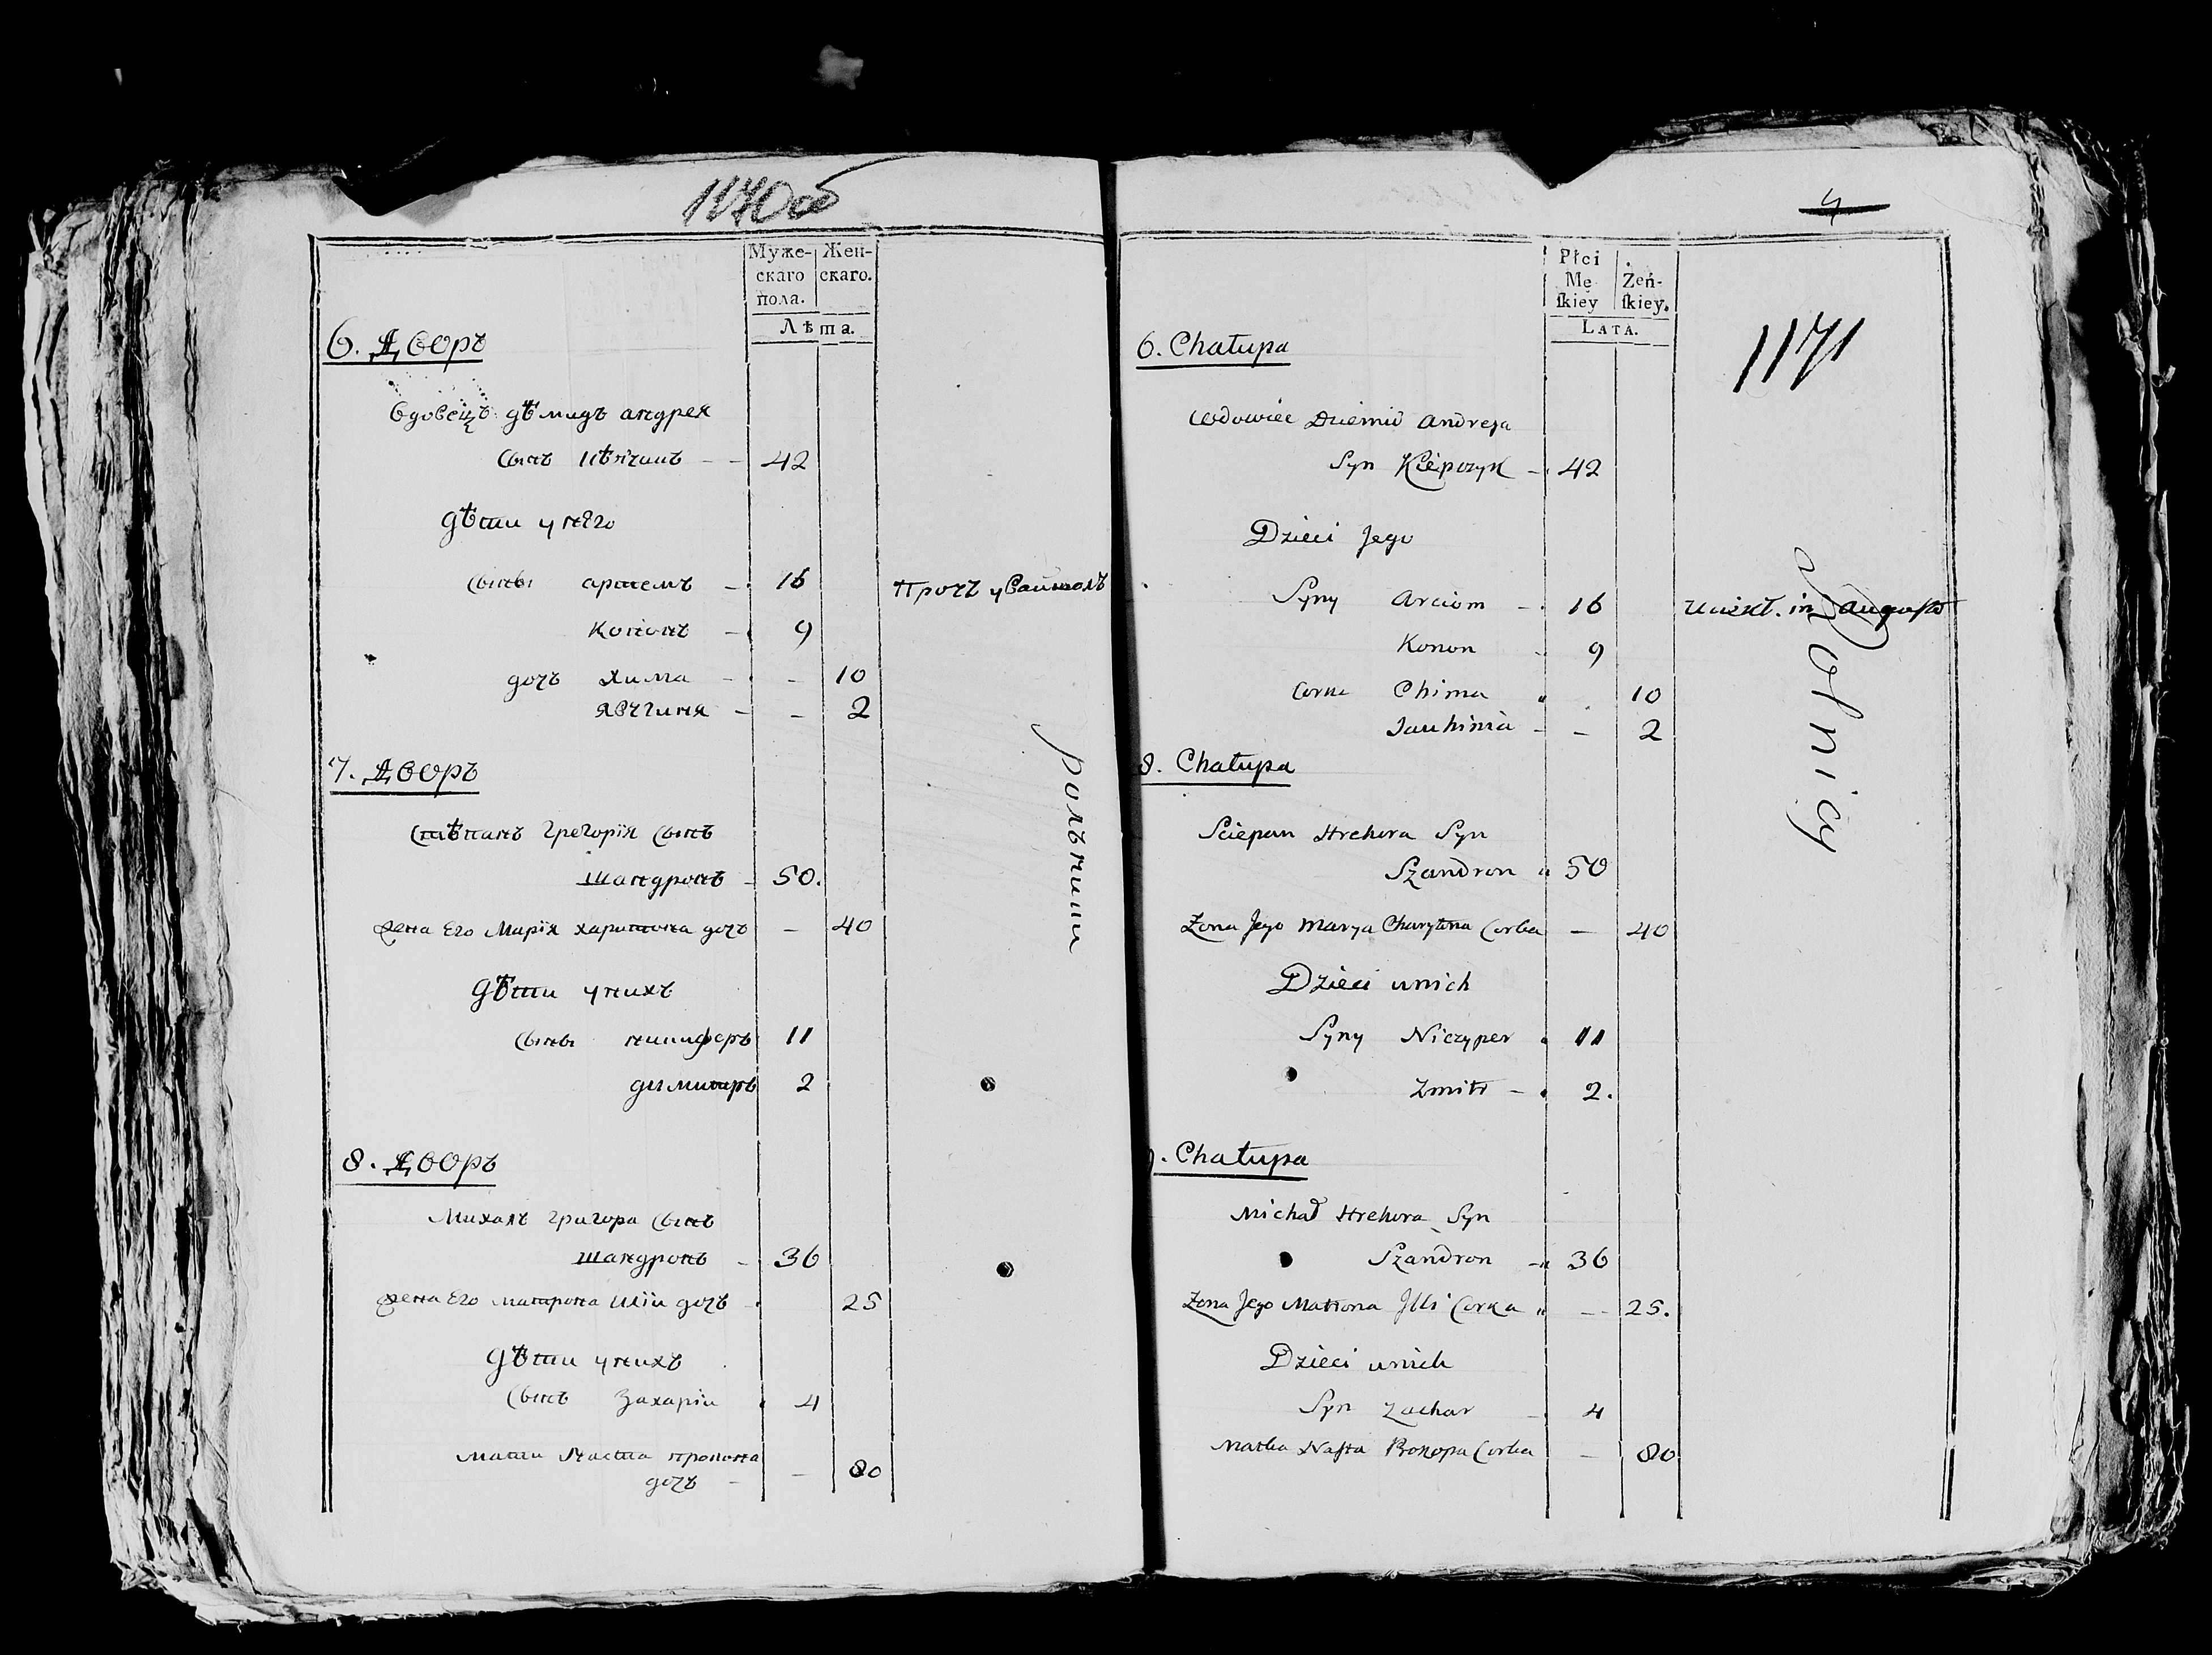 1170об
Муже-
скаго
пола.
Жен-
скаго.
Лѣта.
6. Дворъ
вдовецъ дѣмидъ андрея
сынъ кѣпчикъ - - 42
дѣти у него
сыны артемъ - 16
прочъ у Савтолъ
кононъ - 9
дочъ хима - - 10
явгиня - - 2
7. Дворъ
стѣпанъ грегорія сынъ
шандронъ - 50.
жена его Марія харитона дочъ - 40
дѣти у нихъ
сыны ничиферъ 11
димитръ 2
8. Дворъ
Михалъ григора сынъ
шандронъ - 36
жена его матрона иліи дочъ - 25
дѣти у нихъ
сынъ захарій 4
мати настя прокопа
дочъ - - 80
рольники
4
Płci
Mę
ſkiey
Żeń-
ſkiey.
LATA.
1171
6. Chałupa
wdowiec Dziemid Andreja
Syn Kiepczyk - 42
Dzieci Jego
Syny Arciom - 16
uciekł. in Augusto
Konon - 9
Corki Chima 10
Jauhinia - - 2
8. Chałupa
Sciepan Hrehora Syn
Szandron 50
Zona Jego Marya Charytona Corka - 40
Dzieci unich
Syny Niczyper 11
Zmitr - 2.
. Chałupa
Michał Hrehora Syn
Szandron - 36
Zona Jego Matrona Illi Corka - 25.
Dzieci unich
Syn Zachar - 4
Matka Nasta Prokopa Corka - 80
Rolnicy